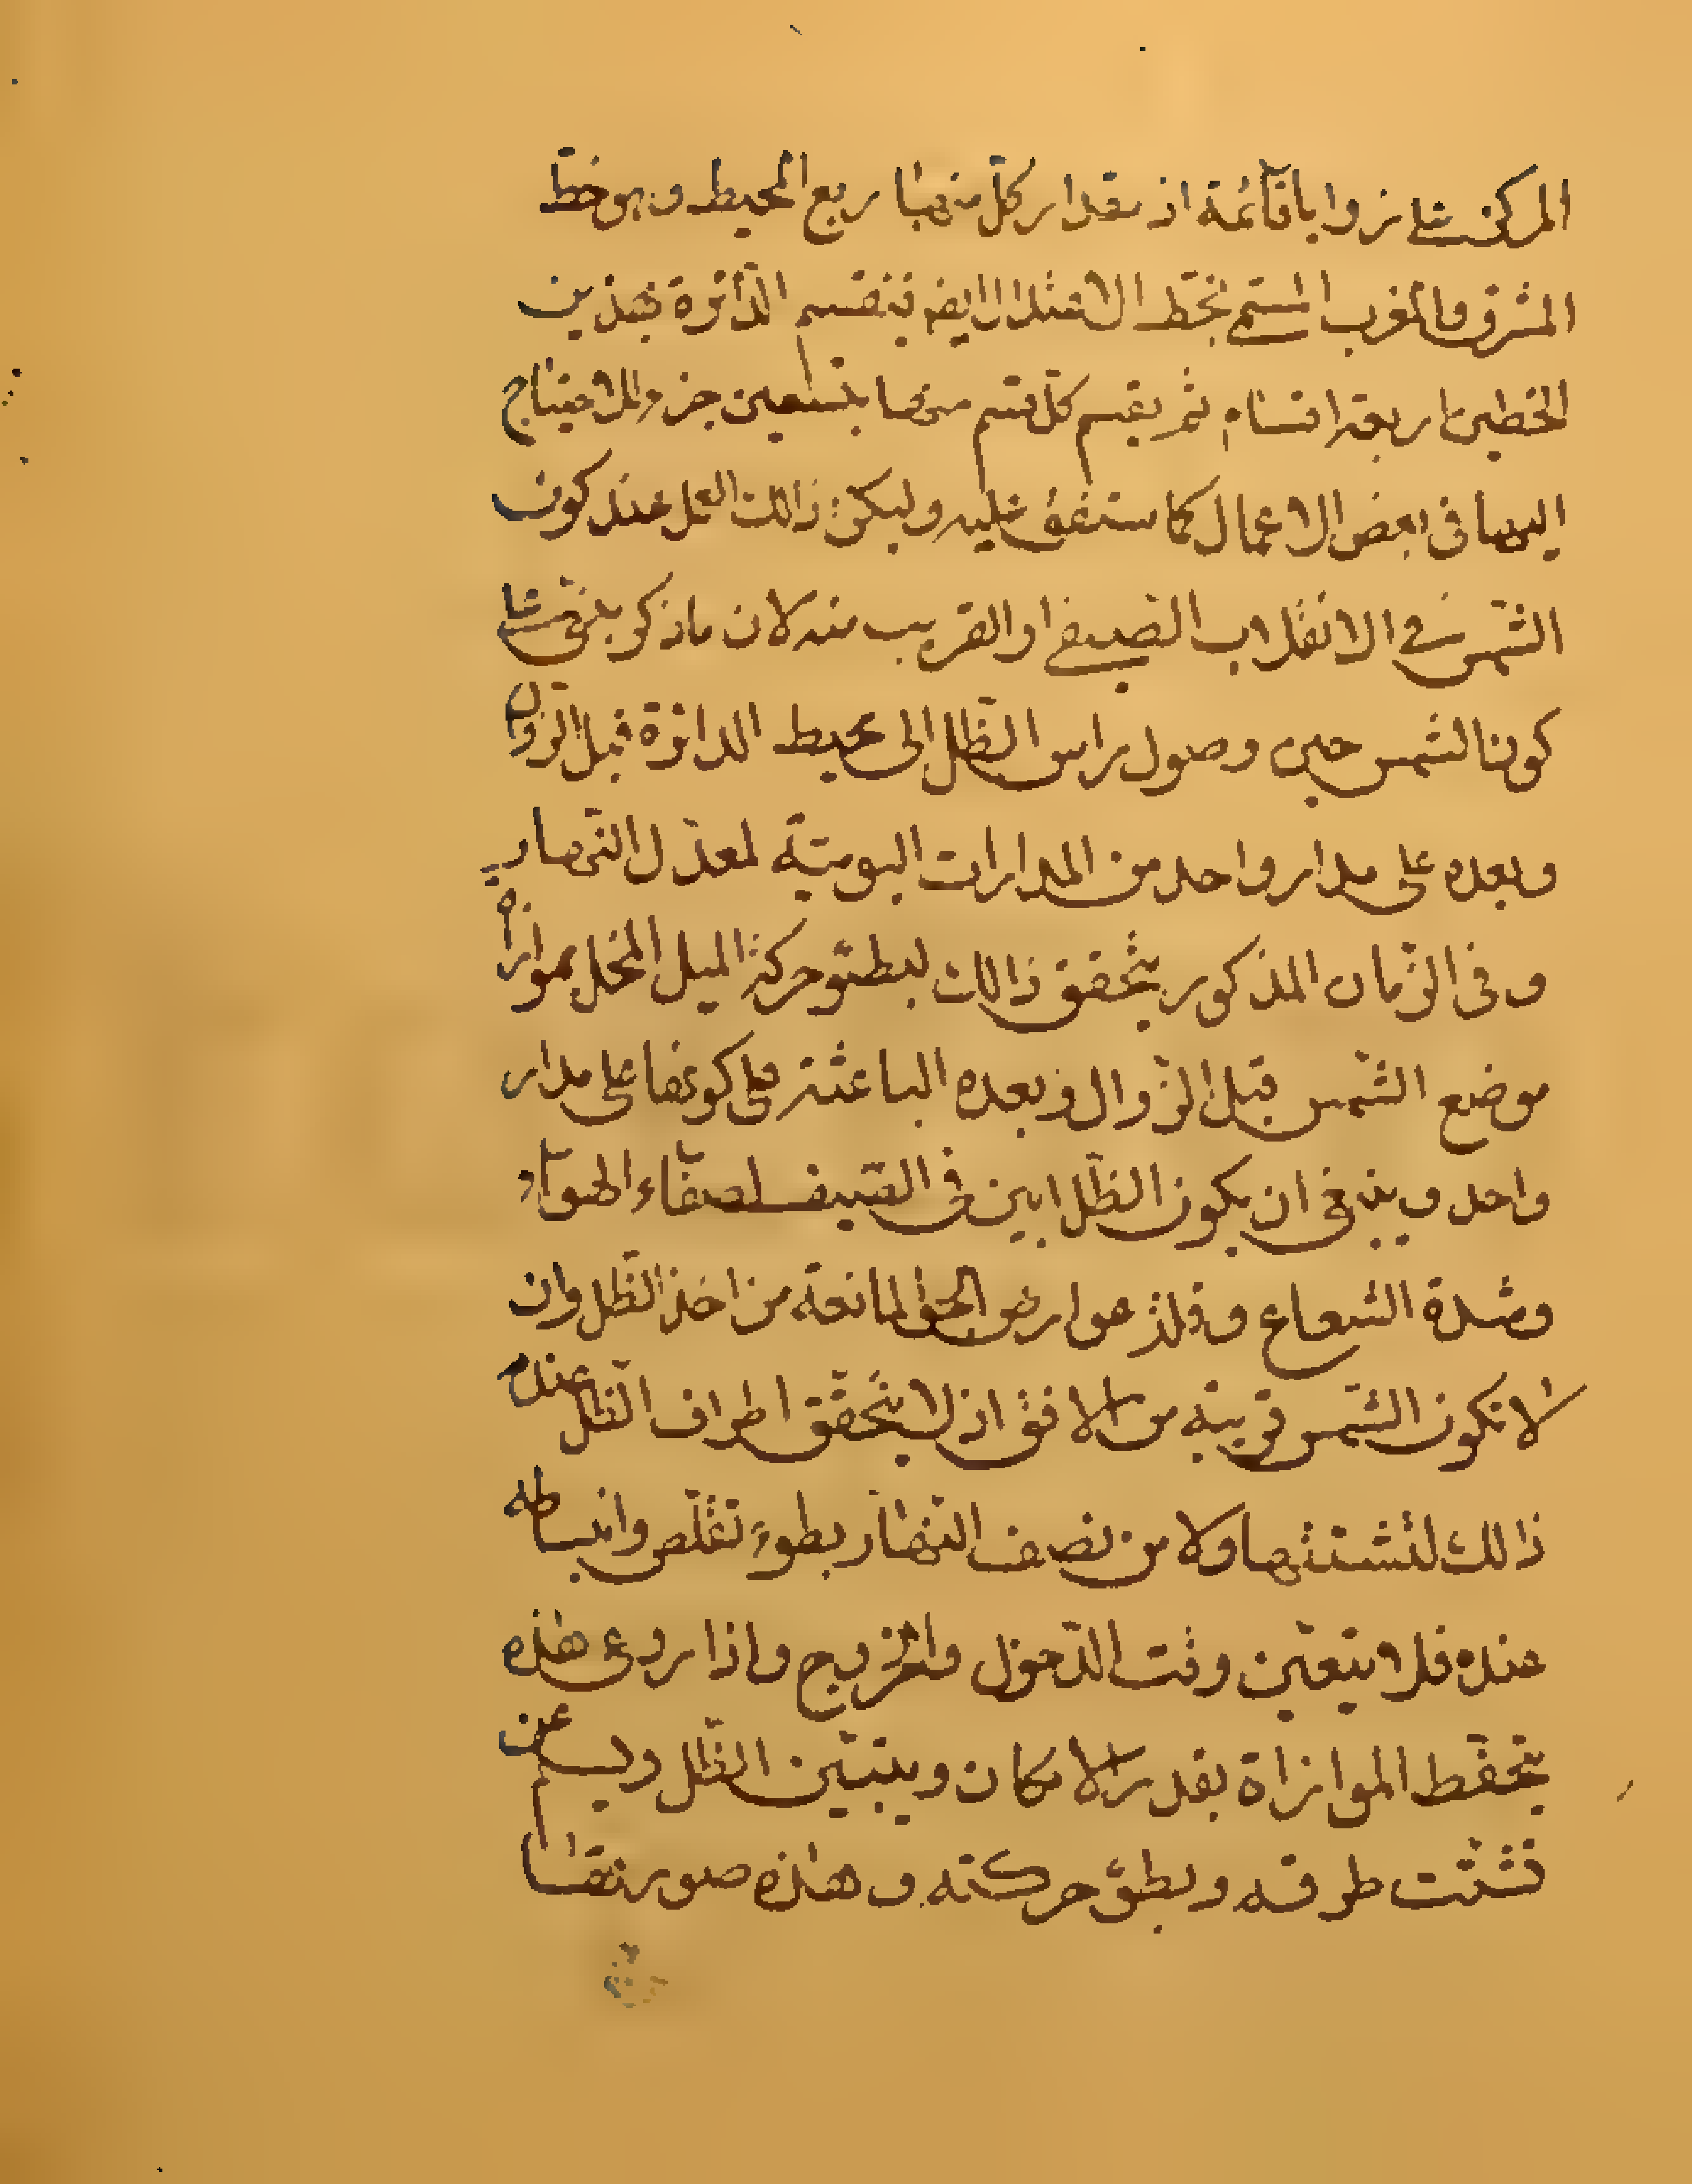 المركز على زوايا قآئمة اذ مقدار كلّ منها ربع المحيط وهو خطّ
المشرق والمغرب المستمى بخطّ الاعتدال ايضا فينقسم الدّائرة بهذين
الخطين اربعة اقسام ثم يقسم كلّ قسم منها بتسعين جزء للاحتياج
اليها في بعض الاعمال كما ستقف عليه وليكن ذالك العمل عند كون
الشّمس في الانقلاب الصّيفي او القريب منه لان ماذكر يبتنى على
كون الشمس حين وصول راس الظّل الى محيط الدائرة قبل الزّوال
وبعده على مدار واحد من المدارات اليوميّة لمعدّل النّهار
وفي الزّمان المذكور يتحقق ذالك لبطئو حركة الميل المخل بموازاة
موضع الشّمس قبل الزّوال وبعده الباعثة على كونها على مدار
واحد وينبغي ان يكون الظّل ابين في الصّيف لصفآء الهوآء
وشدة الشعاع وقلّة عوارض الجوّ المانعة من اخذ الظّل وان
لا تكون الشّمس قريبة من الافق اذ لا يتحقّق اطراف الظّل عند
ذالك لتشتتها ولا من نصف النّهار بطوء تقلّص وانبساطه
عنده فلا يتعيّن وقت الدّخول والخروج واذا روعى هذه
يتحفّظ الموازاة بقدر الامكان ويتبيّن الظّل ويسلم عن
تشتّت طرفه وبطؤ حركته وهذه صورتها